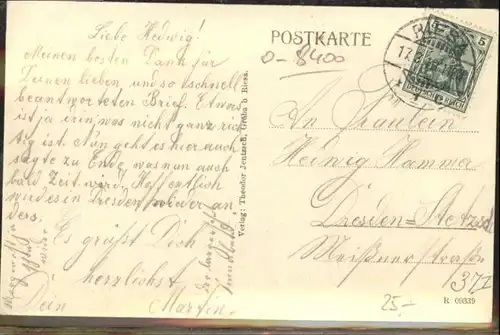 Liebe Hedwig!
Meinen besten Dank für
Deinen lieben und so schnell
beantworteten Brief. Etwas
ist ja irin, was nicht ganz rich
tig ist. Nun geht es hier auch
sagte zu Ende, was nun auch
bald Zeit wird. Hoffentlich
wird es in Dresden wieder an
ders.
Es grüßt Dich
herzlichst
Dein Martin.
Verlag: Theodor Jentzsch, Gröba b. Riesa.
POSTKARTE
0-8400
RIESA
5
DEUTSCHES REICH
An Fräulein
Hedwig Hammer
Dresden-
Meißnerstraße
37 I
25.-
R 09339